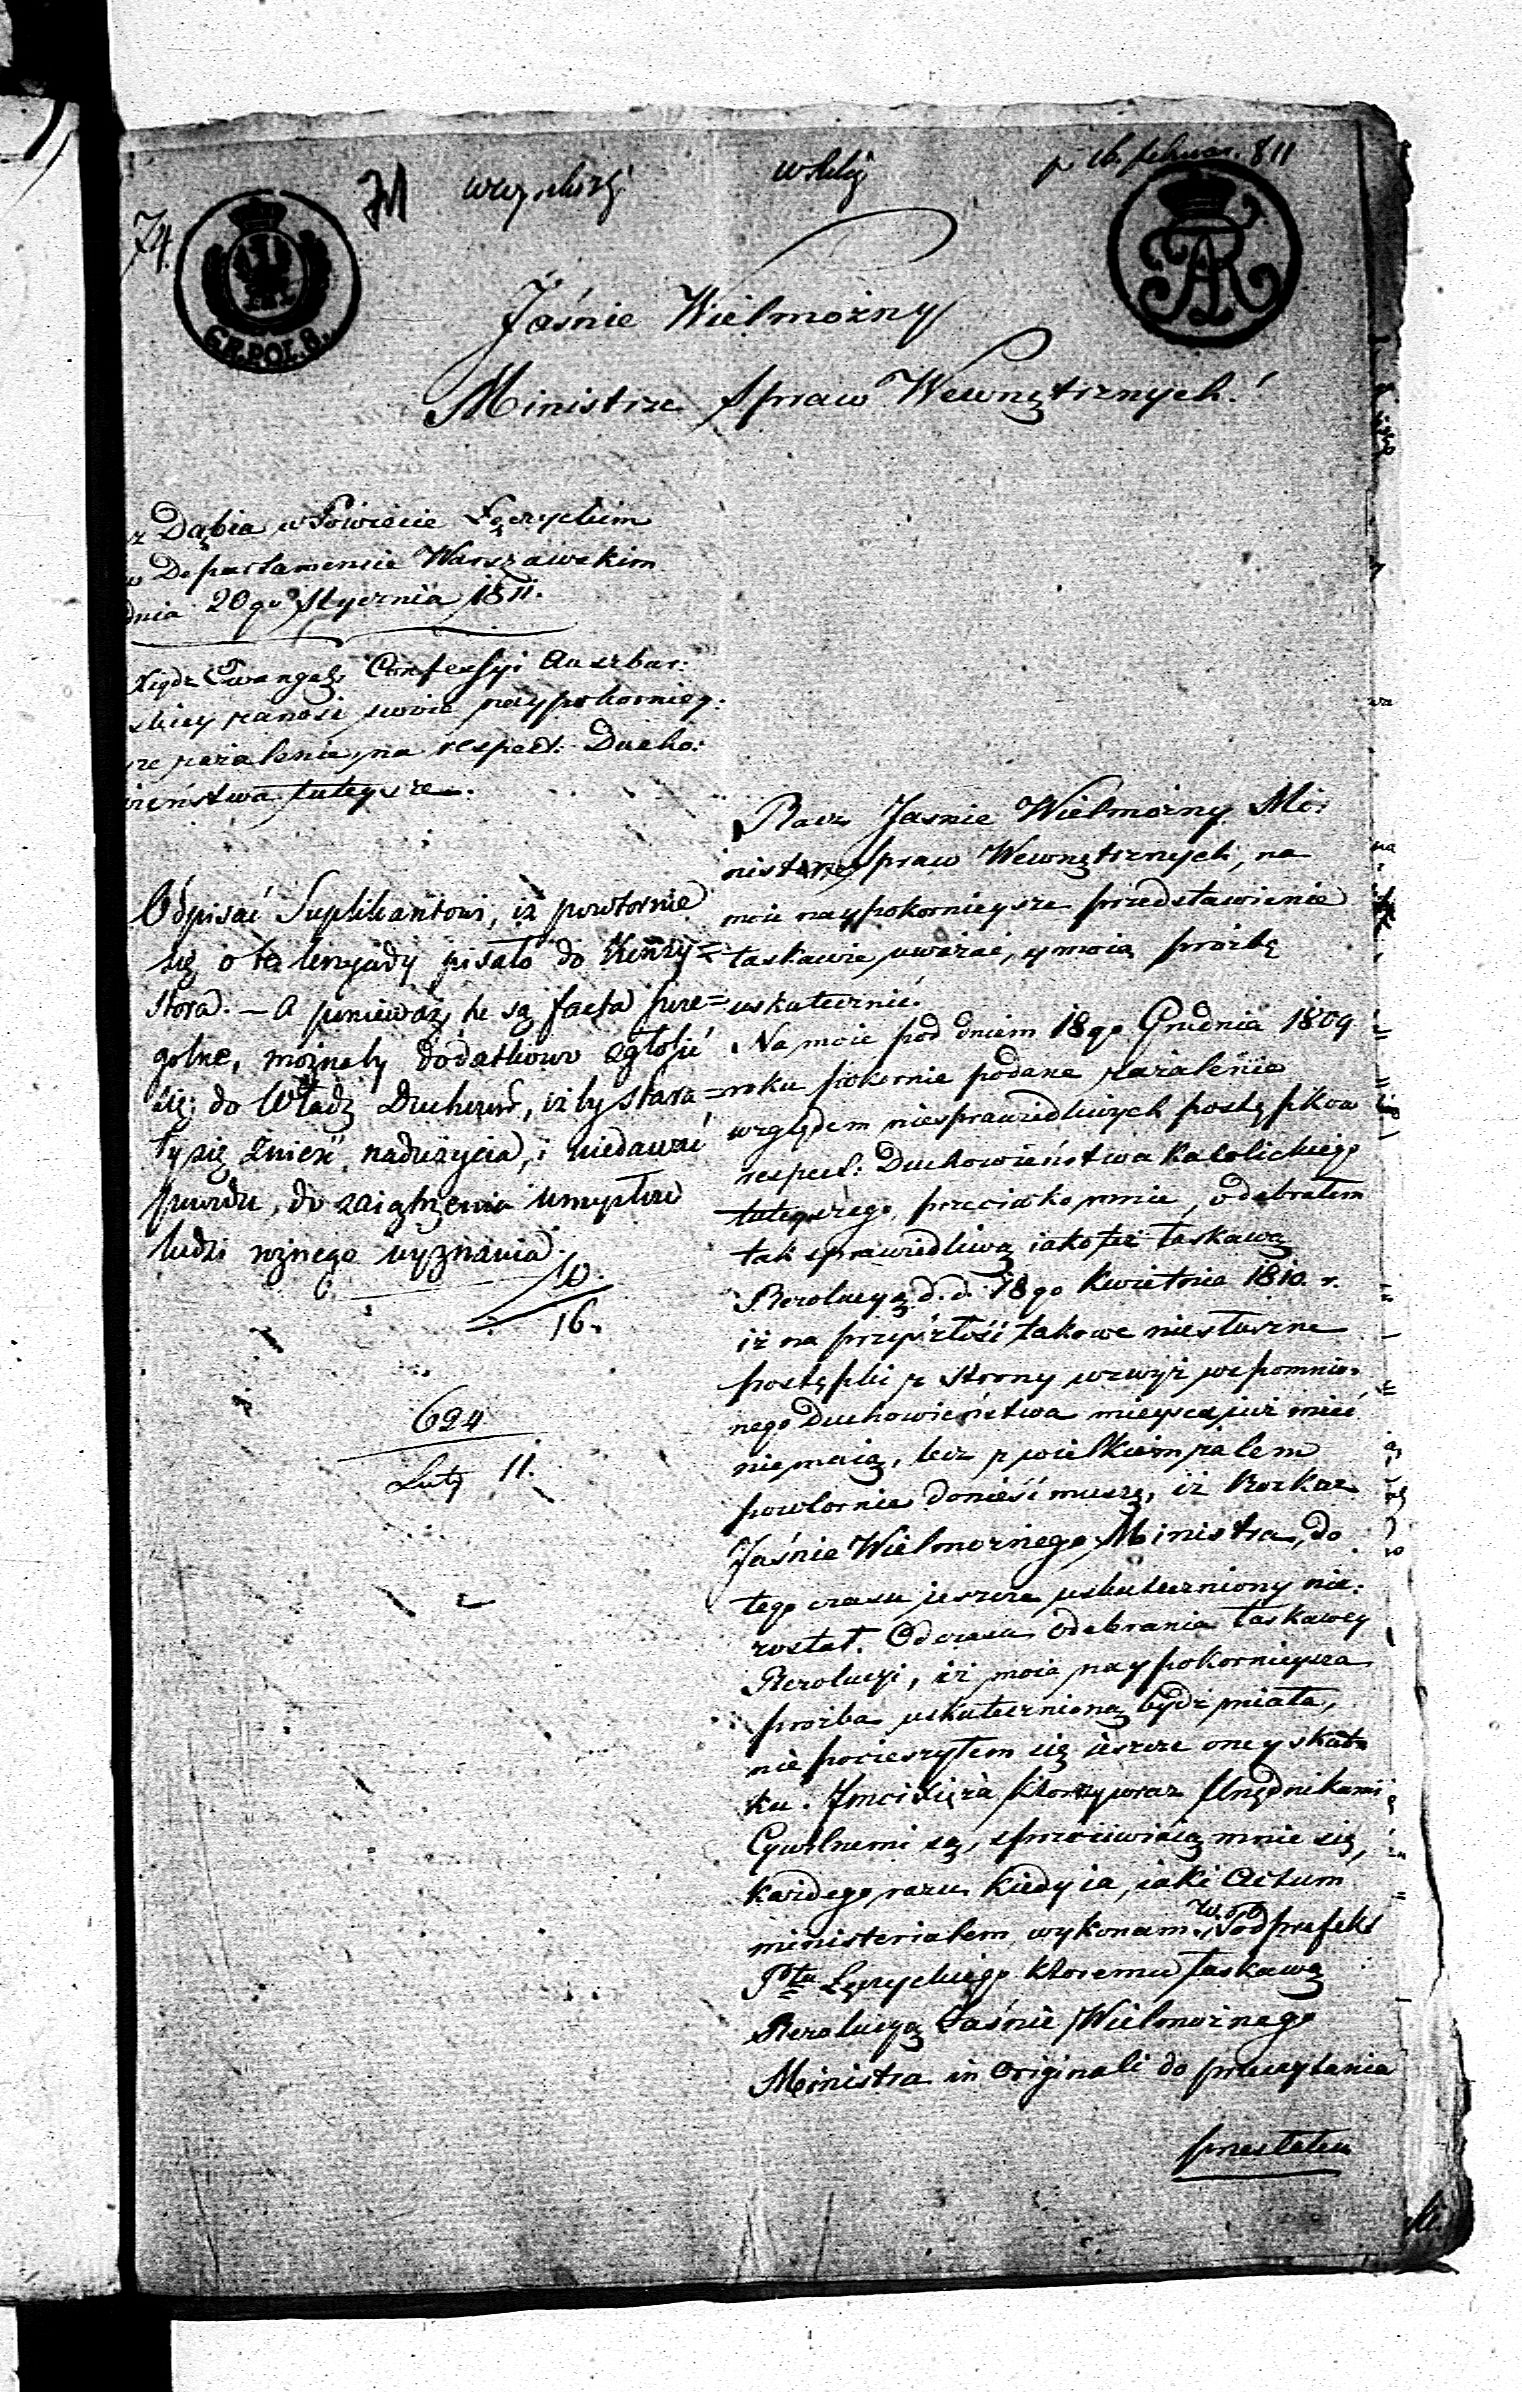 74.
71
p. 16. februar. 811
GR. POL. 8.
FAR
Jaśnie Wielmożny
Ministrze Spraw Wewnętrznych!
z Dąbia w Powiecie Łęczyckim
w Departamencie Warszawskim
dnia 20go Stycznia 1811.
Xiądz Ewangel: Confessyi Auszbur:
skiey zanosi swoie naypokorniey:
sze zażalenie na respect: Ducho:
wieństwa tuteysze.
Odpisać Suplikantowi, iż powtornie
się o te krzywdy pisało do Konsy=
stora. — A ponieważ te są facta szcze=
golne, możnaby dodatkowo zgłosić
się do Władz Duchown, iżby stara=
ły się znieść nadużycia, i niedawać
powodu, do zaiątrzenia umysłów
ludzi rożnego wyznania.
10.
16.
624
Luty 11.
Racz Jasnie Wielmożny Mi:
nistrze Spraw Wewnętrznych, na
moie naypokornieysze przedstawienie
łaskawie uważać, y moią prożbę
uskutecznić.
Na moie pod dniem 18go Grudnia 1809
roku pokornie podane zażalenie
względem niesprawiedliwych postępkow
respect: Duchowieństwa Katolickiego
tuteyszego, przeciwko mnie, odebrałem
tak sprawiedliwą iako też łaskawą
Rezolucyą d. d. 18go Kwietnia 1810. r.
iż na przyszłość takowe niesłuszne
postępki z strony wzwyż wspomnio:
nego Duchowieństwa mieysca już mieć
nie maią, lecz z wielkiem żalem
powtornie donieść muszę, iż Rozkaz
Jaśnie Wielmożnego Ministra, do
tego czasu jeszcze uskuteczniony nie:
został. Od czasu odebrania łaskawey
Rezolucyi, iż moia naypokornieysza
prożba uskuteczniona bydź miała,
nie pocieszyłem się ieszcze oney skut=
ku. Jmci Xięża ktorzy wraz Urzędnikami
Cywilnemi są, sprzeciwiaią mnie się,
każdego razu kiedy ia, iaki Actum
ministerialem wykonam. W. Podprefekt
Ptu Łęczyckiego ktoremu łaskawą
Rezolucyą Jaśnie Wielmożnego
Ministra in Originali do przeczytania
przesłałem